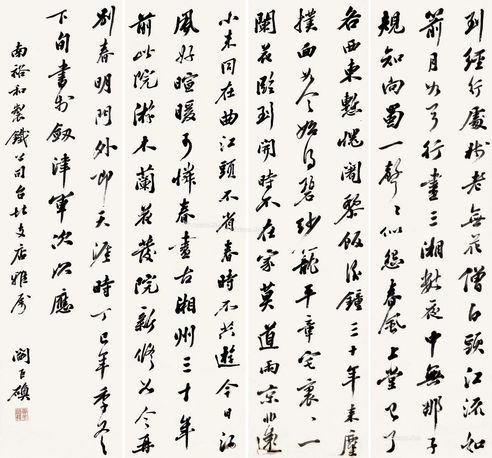 到經行處樹老無花僧白頭江流如
箭月如弓行盡三湘數夜中無那子
規知向蜀一聲聲似怨春風上堂已了
各西東慙愧闍黎飯後鐘三十年來塵
撲面如今始得碧紗籠平章宅裏一
闌花臨到開時不在家莫道兩京非遠
小來同在曲江頭不省春時不共遊今日江
風好暄暖可憐春盡古湘州三十年
前此院遊木蘭花發院新修如今再
別春明門外即天涯時丁巳年季冬
下旬書於劔津軍次以應
南裕和製鐵公司台北支店雅屬